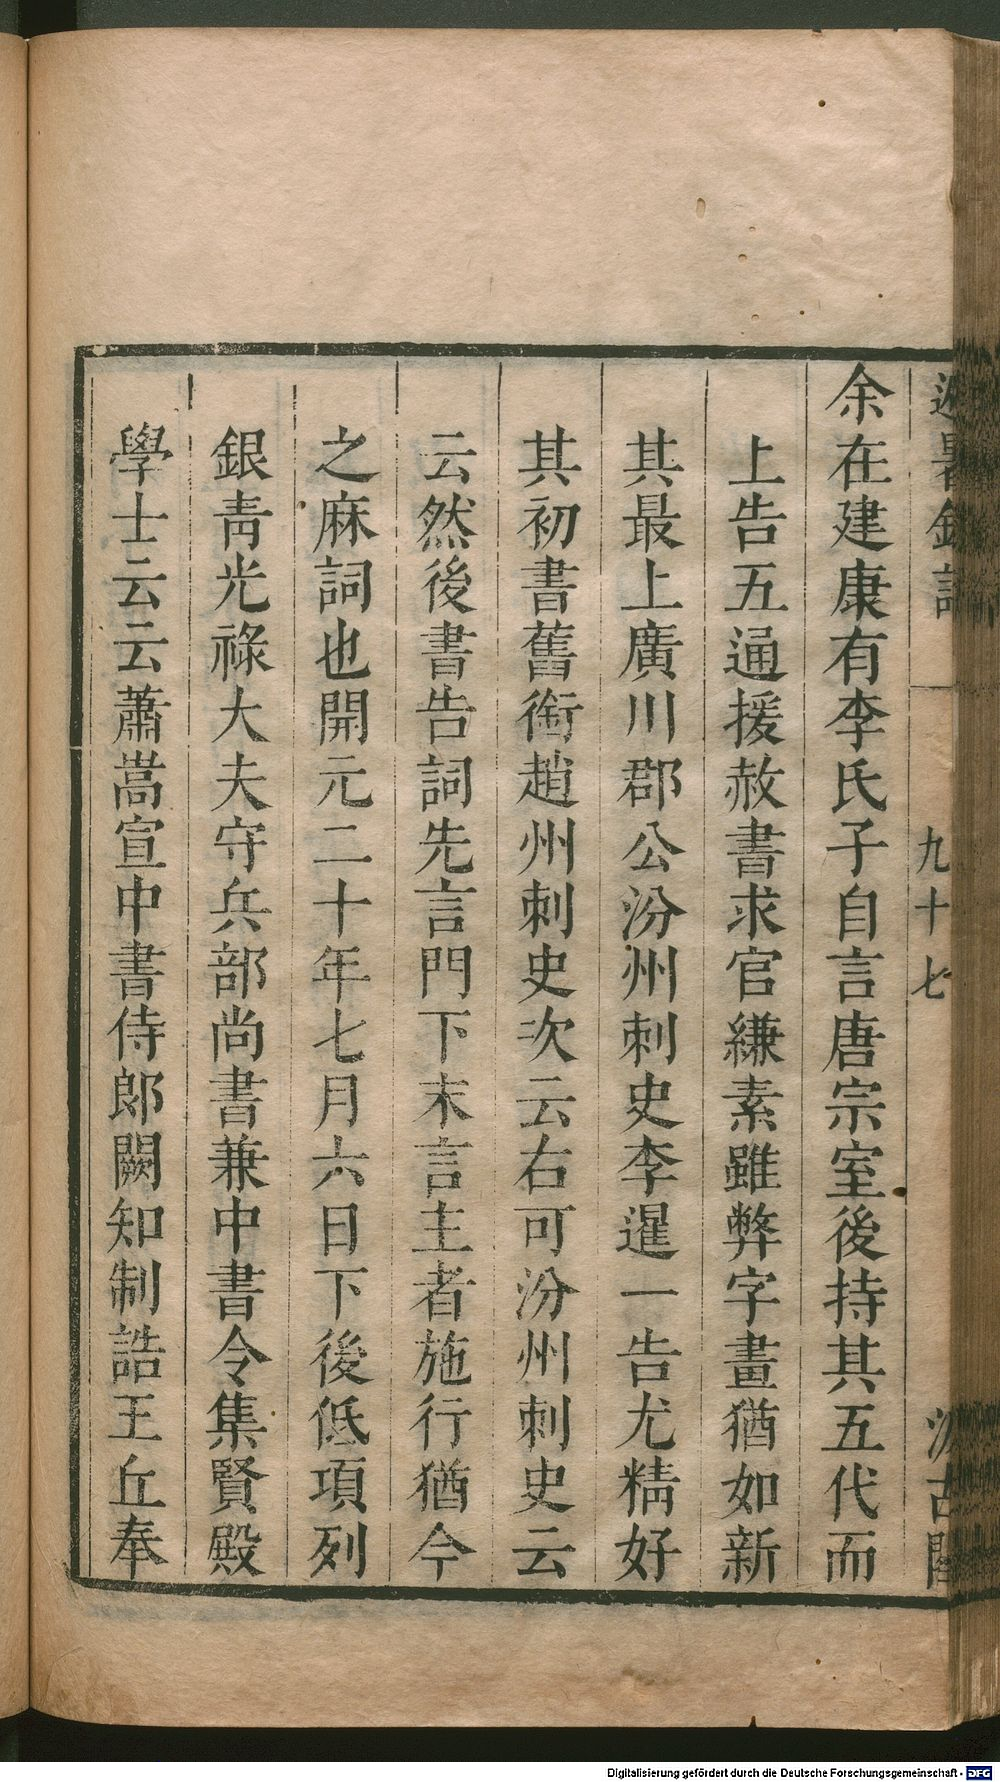 避暑錄話
九十七
汲古閣
余在建康有李氏子自言唐宗室後持其五代而
上告五通援赦書求官縑素雖弊字畫猶如新
其最上廣川郡公汾州刺史李暹一告尤精好
其初書舊銜趙州刺史次云右可汾州刺史云
云然後書告詞先言門下末言主者施行猶今
之麻詞也開元二十年七月六日下後低項列
銀青光祿大夫守兵部尚書兼中書令集賢殿
學士云云蕭嵩宣中書侍郎闕知制誥王丘奉
Digitalisierung gefördert durch die Deutsche Forschungsgemeinschaft - DFG